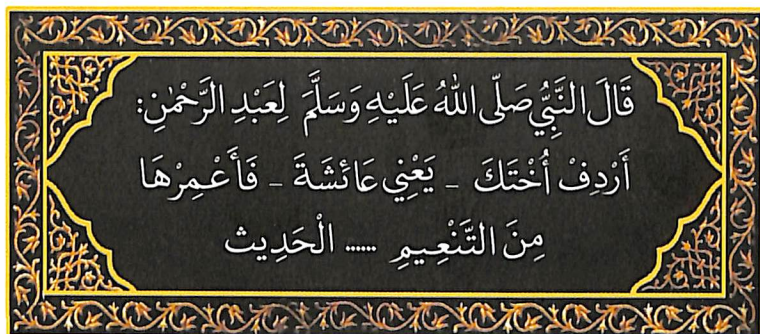 قَالَ النَّبِيُّ صَلَّى اللهُ عَلَيْهِ وَسَلَّمَ لِعَبْدِ الرَّحْمٰنِ:
أَرْدِفْ أُخْتَكَ - يَعْنِي عَائِشَةَ - فَأَعْمِرْهَا
مِنَ التَّنْعِيمِ ...... الْحَدِيث